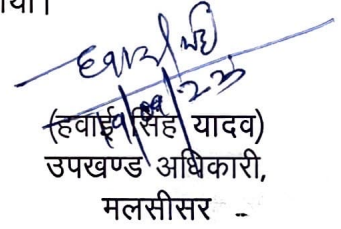 या।
(हवाई सिंह यादव)
उपखण्ड अधिकारी,
मलसीसर